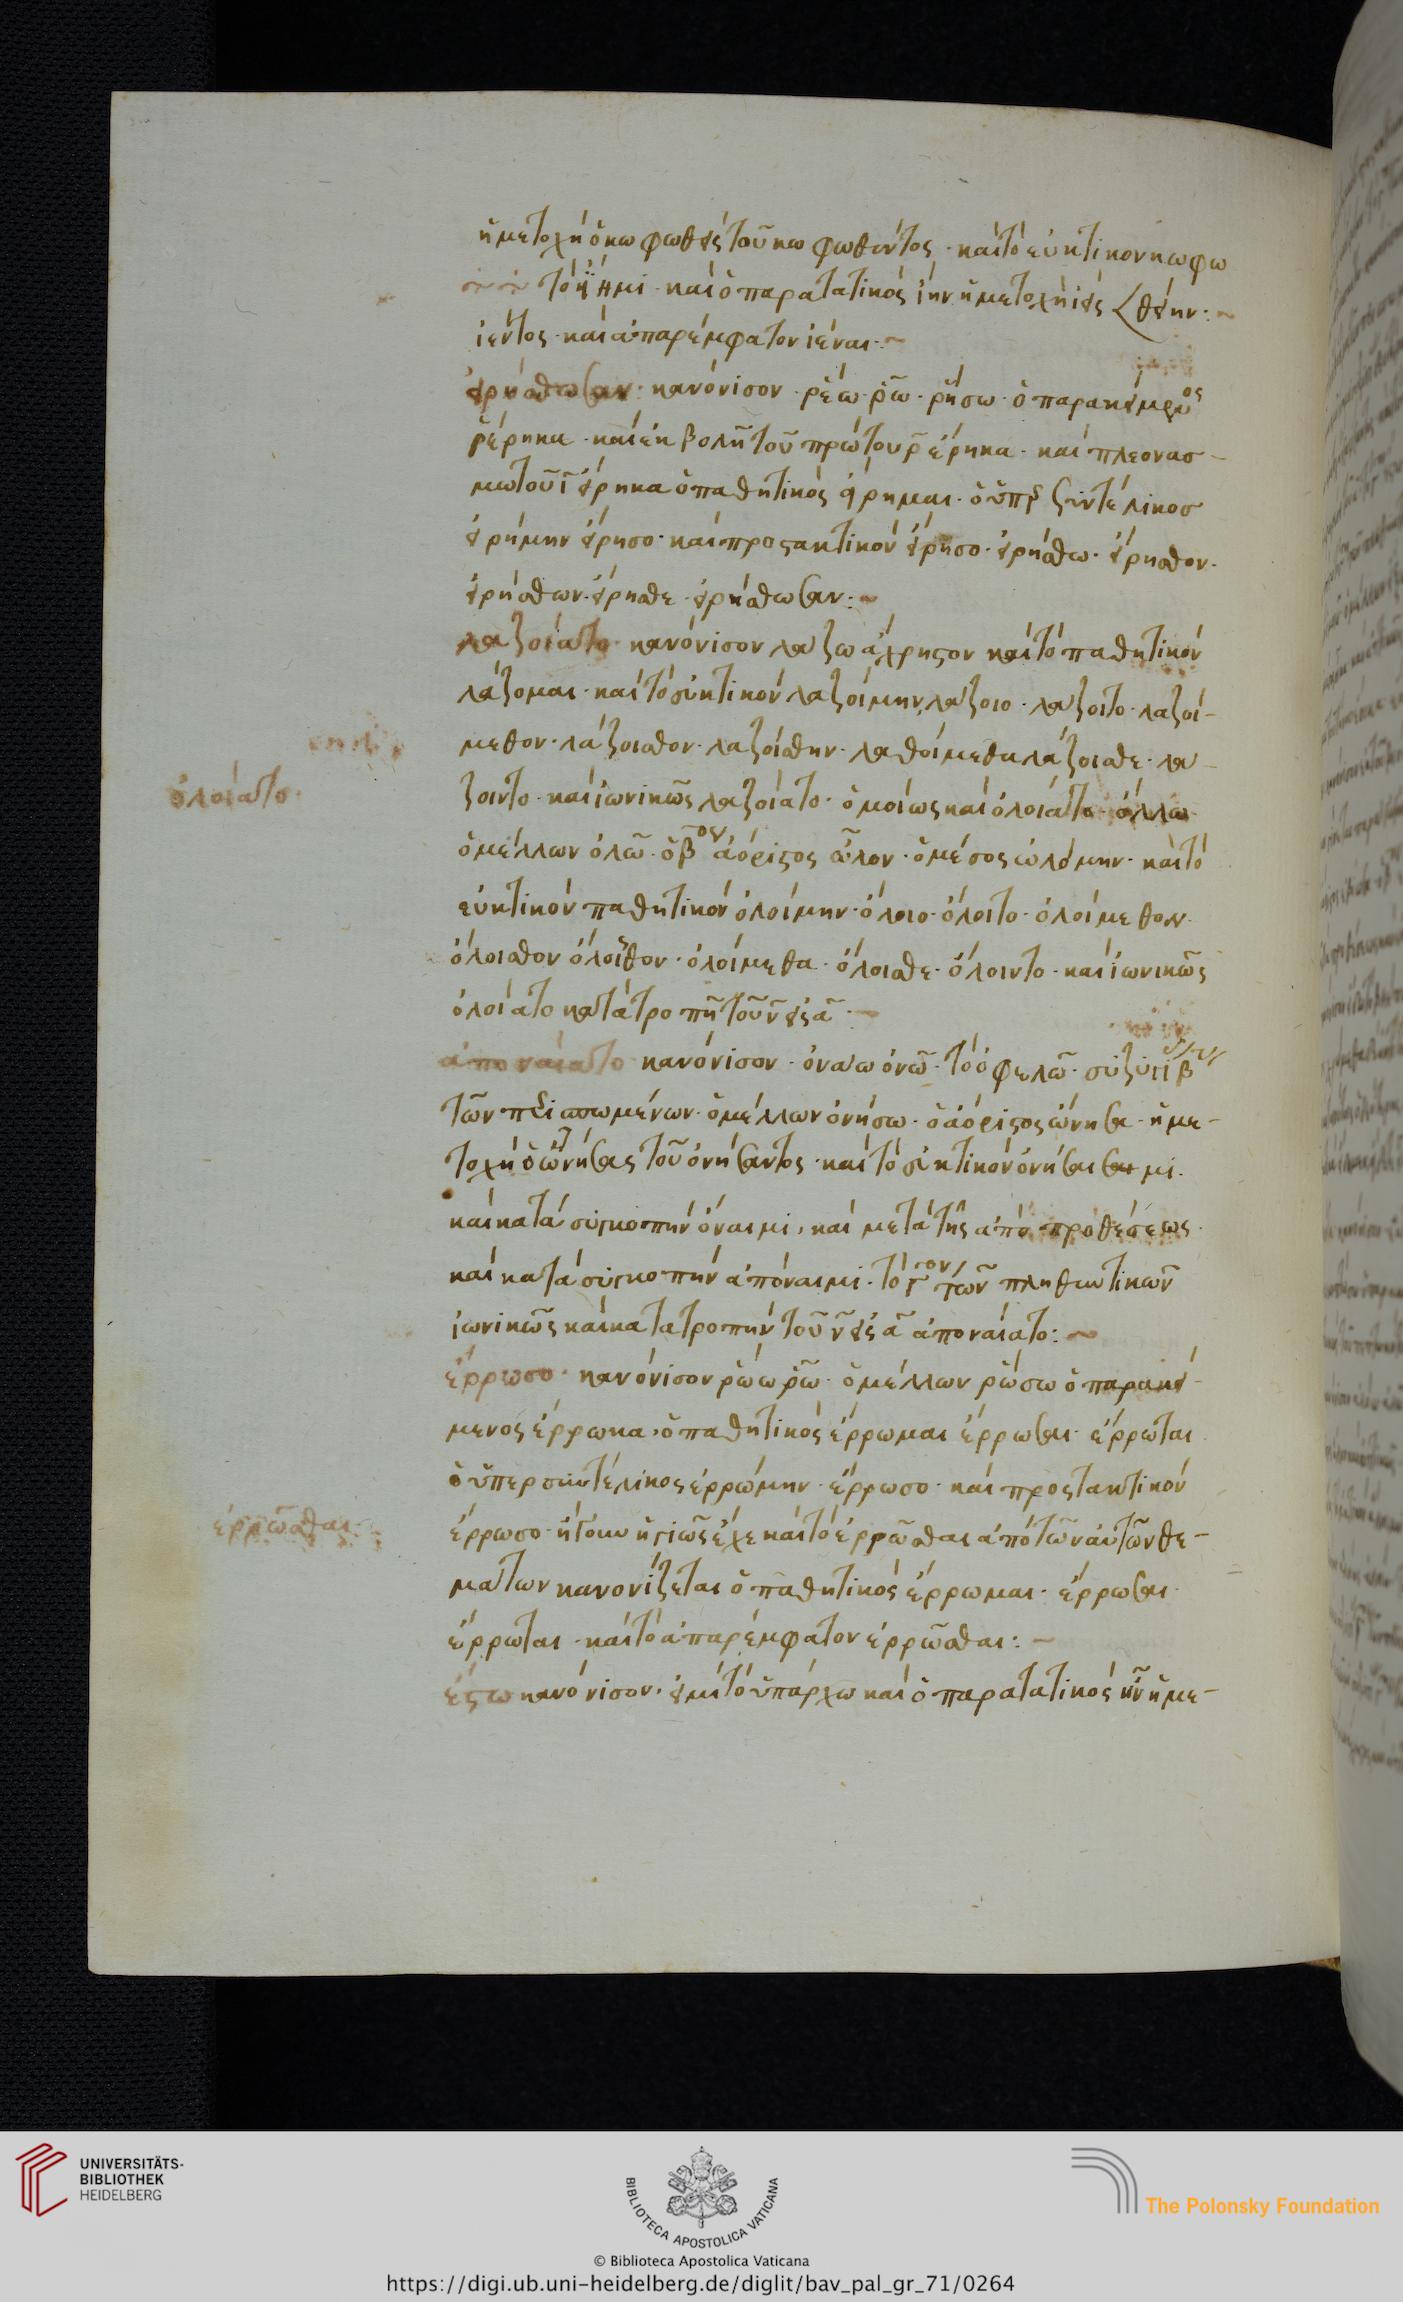 ἡ μετοχὴ ὁ κωφωθεὶς τοῦ κωφωθέντος · καὶ τὸ εὐκτικὸν κωφω
τὸ ἵημι · καὶ ὁ παρατατικὸς ἵην ἡ μετοχὴ ἱεὶς θείην :~
ἱέντος · καὶ ἀπαρέμφατον ἱέναι :~
εἰρήσθωσαν · κανόνισον · ῥέω · ῥῶ · ῥήσω · ὁ παρακείμενος
ῥέρηκα · καὶ ἐκβολῇ τοῦ πρώτου ρ̄ ἔρηκα · καὶ πλεονασ-
μῷ τοῦ ῑ εἴρηκα ὁ παθητικὸς εἴρημαι · ὁ ὑπερσυντέλικοσ
εἰρήμην εἴρησο · καὶ προςακτικὸν εἴρησο · εἰρήσθω · εἴρησθον ·
εἰρήσθων · εἴρησθε · εἰρήσθωσαν :~
λαζοίατο · κανόνισον λάζω ἄχρηςον καὶ τὸ παθητικὸν
λάζομαι · καὶ τὸ εὐκτικὸν λαζοίμην, λάζοιο · λάζοιτο · λαζοί-
μεθον · λάζοισθον · λαζοίσθην · λαθοίμεθα λάζοισθε · λά-
ζοιντο · καὶ ἰωνικῶς λαζοίατο · ὁμοίως καὶ ὀλοίατο · ὄλλω
ὀλοίατο ·
ὁ μέλλων ὀλῶ · ὁ β̄ος ἀόριςος ὦλον · ὁ μέσος ὠλόμην · καὶ τὸ
εὐκτικὸν παθητικὸν ὀλοίμην · ὄλοιο · ὄλοιτο · ὀλοίμεθον ·
ὄλοισθον · ὀλοίμεθα · ὄλοισθε · ὄλοιντο · καὶ ἰωνικῶς
ὀλοίατο κατὰ τροπὴ τοῦ ν̄ εἰς ᾱ ·~
ἀποναίατο κανόνισον · ὀνάω ὀνῶ · τὸ ὀφελῶ · συζυγί β̄
τῶν περισπωμένων · ὁ μέλλων ὀνήσω · ὁ ἀόριςος ὤνησα · ἡ με-
τοχὴ ὁ ὠνήσας τοῦ ὀνήσαντος · καὶ τὸ εὐκτικὸν ὀνήσαιμι ·
καὶ κατὰ συγκοπὴν ὄναιμι, καὶ μετὰ τῆς ἀπὸ προθέσεως ·
καὶ κατὰ συγκοπὴν ἀπόναιμι · τὸ γ̄ον τῶν πληθυντικῶν
ἰωνικῶς καὶ κατὰ τροπὴν τοῦ ν̄ εἰς ᾱ ἀποναίατο :~
ἔρρωσο · κανόνισον ῥώω ῥῶ · ὁ μέλλων ῥώσω ὁ παρακεί-
μενος ἔρρωκα · ὁ παθητικὸς ἔρρωμαι ἔρρωσαι · ἔρρωται
ὁ ὑπερσυντέλικος ἐρρώμην · ἔρρωσο · καὶ προςτακτικὸν
ἐρρῶσθαι ·
ἔρρωσο · ἤγουν ὑγιῶς ἔχε καὶ τὸ ἐρρῶσθαι ἀπὸ τῶν αὐτῶν θε-
μάτων κανονίζεται ὁ παθητικὸς ἔρρωμαι · ἔρρωσαι ·
ἔρρωται · καὶ τὸ ἀπαρέμφατον ἐρρῶσθαι :~
ἔςω κανόνισον · εἰμὶ τὸ ὑπάρχω καὶ ὁ παρατατικὸς ἦν ἡ με-
UNIVERSITÄTS-
BIBLIOTHEK
HEIDELBERG
BIBLIOTECA APOSTOLICA VATICANA
The Polonsky Foundation
© Biblioteca Apostolica Vaticana
https://digi.ub.uni-heidelberg.de/diglit/bav_pal_gr_71/0264